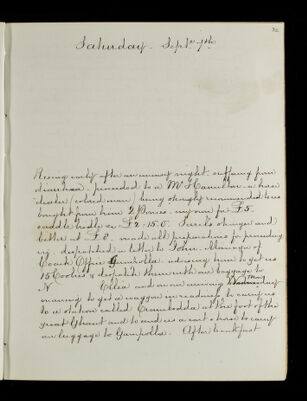 32
Saturday. Septr 7th
Rising early after an uneasy night, suffering from
diarrhoea. proceeded to a Mr Hamilton a horse
dealer (colored man) being strongly recommended &
bought from him 2 Ponies. my one for £.5.
saddle bridle &c £2.15.0.
both at £.8. made all preparations for proceeding
up. despatched a letter to John
Coach Office Gampolla advising him to get us
15 Coolies & despatch them with our baggage to
N Ellia and on our arriving
morning to get a waggon in readiness to carry us
to a station called Rambodda at the foot of the
great Ghaut and to send us a cart & horse to carry
our luggage to Gampolla. After breakfast